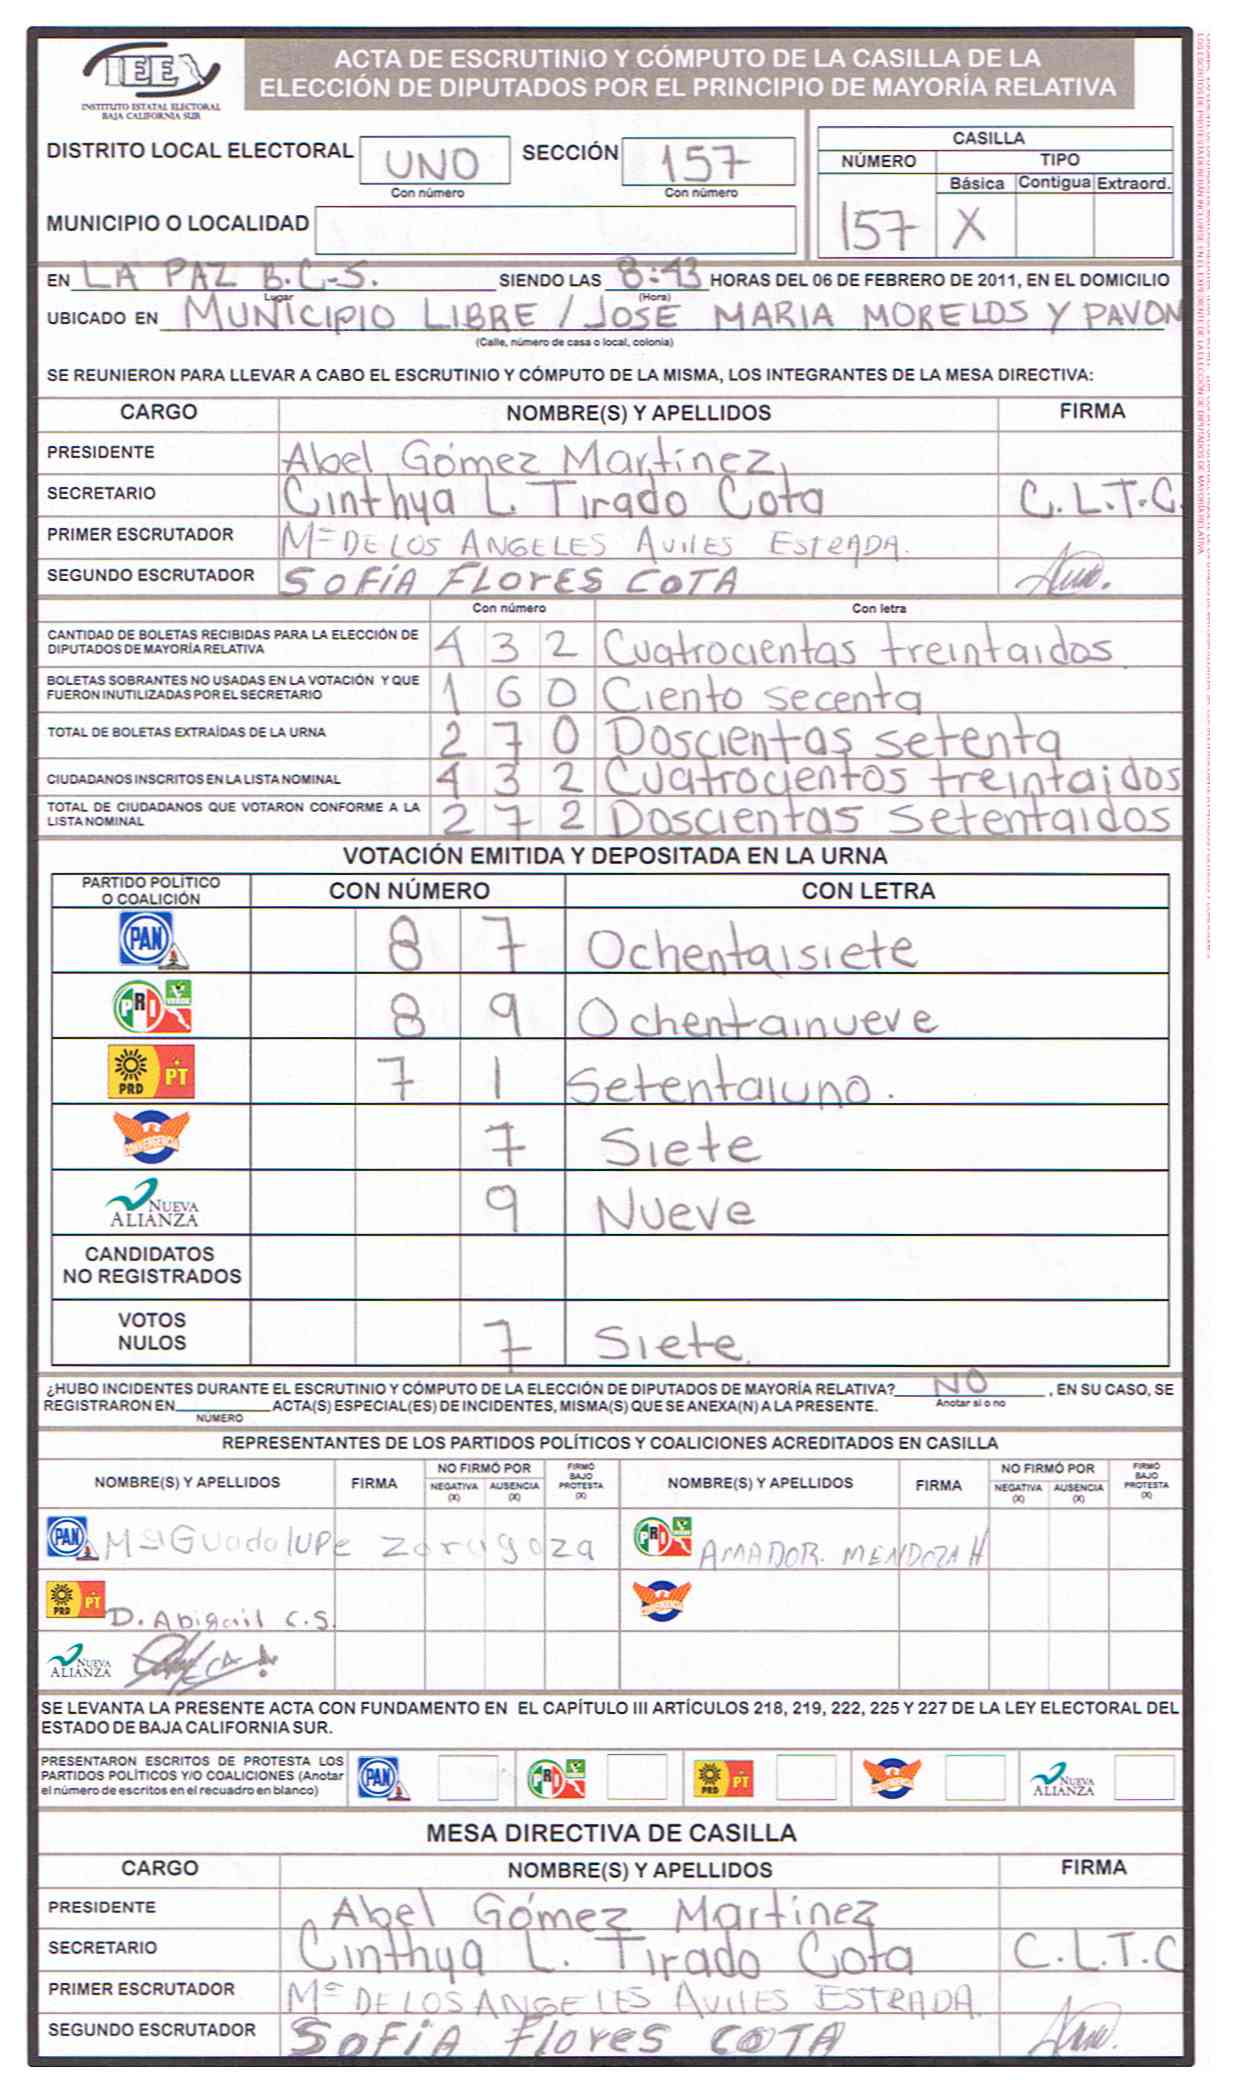 IEE
INSTITUTO ESTATAL ELECTORAL
BAJA CALIFORNIA SUR
ACTA DE ESCRUTINIO Y CÓMPUTO DE LA CASILLA DE LA
ELECCIÓN DE DIPUTADOS POR EL PRINCIPIO DE MAYORÍA RELATIVA
DISTRITO LOCAL ELECTORAL UNO SECCIÓN 157
Con número Con número
MUNICIPIO O LOCALIDAD
CASILLA
NÚMERO TIPO
Básica Contigua Extraord.
157 X
EN LA PAZ B.C.S. SIENDO LAS 8:43 HORAS DEL 06 DE FEBRERO DE 2011, EN EL DOMICILIO
Lugar (Hora)
UBICADO EN MUNICIPIO LIBRE / JOSE MARIA MORELOS Y PAVON
(Calle, número de casa o local, colonia)
SE REUNIERON PARA LLEVAR A CABO EL ESCRUTINIO Y CÓMPUTO DE LA MISMA, LOS INTEGRANTES DE LA MESA DIRECTIVA:
CARGO NOMBRE(S) Y APELLIDOS FIRMA
PRESIDENTE Abel Gómez Martínez
SECRETARIO Cinthya L Tirado Cota C.L.T.C.
PRIMER ESCRUTADOR Mª DE LOS ANGELES AVILES ESTRADA.
SEGUNDO ESCRUTADOR SOFÍA FLORES COTA
Con número Con letra
CANTIDAD DE BOLETAS RECIBIDAS PARA LA ELECCIÓN DE
DIPUTADOS DE MAYORÍA RELATIVA 4 3 2 Cuatrocientas treintaidos
BOLETAS SOBRANTES NO USADAS EN LA VOTACIÓN Y QUE
FUERON INUTILIZADAS POR EL SECRETARIO 1 6 0 Ciento secenta
TOTAL DE BOLETAS EXTRAÍDAS DE LA URNA 2 7 0 Doscientas setenta
CIUDADANOS INSCRITOS EN LA LISTA NOMINAL 4 3 2 Cuatrocientos treintaidos
TOTAL DE CIUDADANOS QUE VOTARON CONFORME A LA
LISTA NOMINAL 2 7 2 Doscientas Setentaidos
VOTACIÓN EMITIDA Y DEPOSITADA EN LA URNA
PARTIDO POLÍTICO
O COALICIÓN CON NÚMERO CON LETRA
PAN 8 7 Ochentaisiete
PRI VERDE 8 9 Ochentainueve
PRD PT 7 1 Setentaiuno.
CONVERGENCIA 7 Siete
NUEVA ALIANZA 9 Nueve
CANDIDATOS
NO REGISTRADOS
VOTOS
NULOS 7 Siete.
¿HUBO INCIDENTES DURANTE EL ESCRUTINIO Y CÓMPUTO DE LA ELECCIÓN DE DIPUTADOS DE MAYORÍA RELATIVA? NO , EN SU CASO, SE
Anotar si o no
REGISTRARON EN ACTA(S) ESPECIAL(ES) DE INCIDENTES, MISMA(S) QUE SE ANEXA(N) A LA PRESENTE.
NÚMERO
REPRESENTANTES DE LOS PARTIDOS POLÍTICOS Y COALICIONES ACREDITADOS EN CASILLA
NOMBRE(S) Y APELLIDOS FIRMA NO FIRMÓ POR NEGATIVA (X) AUSENCIA (X) FIRMÓ BAJO PROTESTA (X) NOMBRE(S) Y APELLIDOS FIRMA NO FIRMÓ POR NEGATIVA (X) AUSENCIA (X) FIRMÓ BAJO PROTESTA (X)
PAN Mª Guadalupe Zaragoza PRI VERDE AMADOR. MENDOZA H
PRD PT D. Abigail C.S. CONVERGENCIA
NUEVA ALIANZA
SE LEVANTA LA PRESENTE ACTA CON FUNDAMENTO EN EL CAPÍTULO III ARTÍCULOS 218, 219, 222, 225 Y 227 DE LA LEY ELECTORAL DEL
ESTADO DE BAJA CALIFORNIA SUR.
PRESENTARON ESCRITOS DE PROTESTA LOS
PARTIDOS POLÍTICOS Y/O COALICIONES (Anotar
el número de escritos en el recuadro en blanco)
PAN PRI VERDE PRD PT CONVERGENCIA NUEVA ALIANZA
MESA DIRECTIVA DE CASILLA
CARGO NOMBRE(S) Y APELLIDOS FIRMA
PRESIDENTE Abel Gómez Martinez
SECRETARIO Cinthya L. Tirado Cota C.L.T.C
PRIMER ESCRUTADOR Mª DE LOS ANGELES AVILES ESTRADA.
SEGUNDO ESCRUTADOR SOFIA Flores COTA